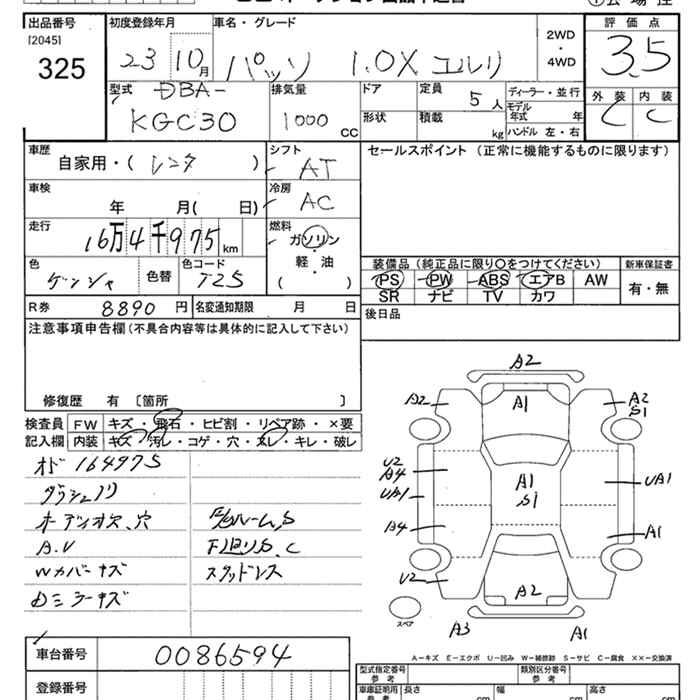 出品番号 初度登録年月 車名・グレード 評価点
[2045]
325 23 10月 パッソ 1.0X 2WD・4WD 3.5
型式 DBA- 排気量 ドア 定員 5人 ディーラー・並行 外装 内装
KGC30 1000 CC 形状 積載 kg モデル年式 年 C C
ハンドル 左・右
車歴 シフト セールスポイント (正常に機能するものに限ります)
自家用・(レンタ) AT
車検 冷房
年 月( 日) AC
走行 燃料
16万4千975km ガソリン
軽・油
( )
色 色替 色コード 装備品 (純正品に限り○をつけてください) 新車保証書
T25 PS PW ABS エアB AW 有・無
SR ナビ TV カワ
R券 8890円 名変通知期限 月 日 後日品
注意事項申告欄(不具合内容等は具体的に記入して下さい)
修復歴 有 [箇所 ]
検査員 FW キズ・飛石・ヒビ割・リペア跡・×要
記入欄 内装 キズ・汚レ・コゲ・穴・スレ・キレ・破レ
オド 164975
オーディオ欠、穴
A.V 下廻りS、C
Wカバーキズ スタッドレス
Dミラーキズ
A2
A2 A1 A2
S1
U2
A4 A1 UA1
UA1 S1
A4 A1
U2 A2
スペア A3 A1
A―キズ E―エクボ U―凹み W―補修跡 S―サビ C―腐食 ××―交換済
車台番号 0086594
型式指定番号 類別区分番号
参考 参考
登録番号 車庫証明用 長さ 幅 高さ
参考 cm cm cm